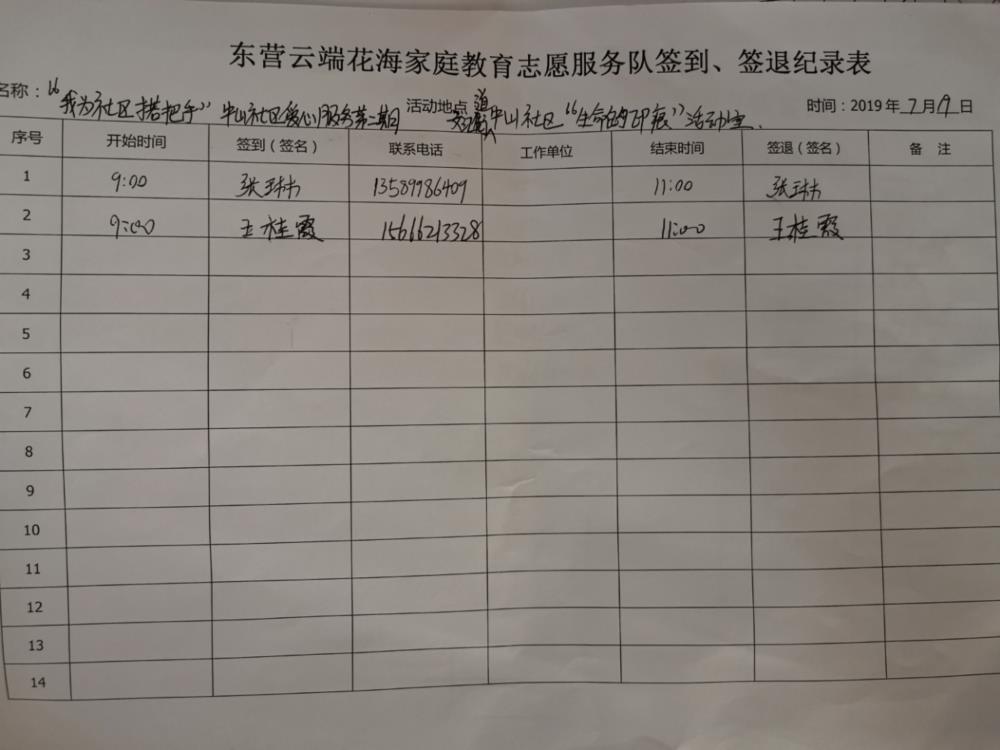 东营云端花海家庭教育志愿服务队签到、签退纪录表
名称：“我为社区搭把手” 中山社区爱心服务第二期 活动地点 中山社区“生命的印痕”活动室. 时间：2019年7月19日
序号 开始时间 签到（签名） 联系电话 工作单位 结束时间 签退（签名） 备 注
1 9:00 张琳 13589986409 11:00 张琳
2 9:00 王桂霞 15666213328 11:00 王桂霞
3
4
5
6
7
8
9
10
11
12
13
14